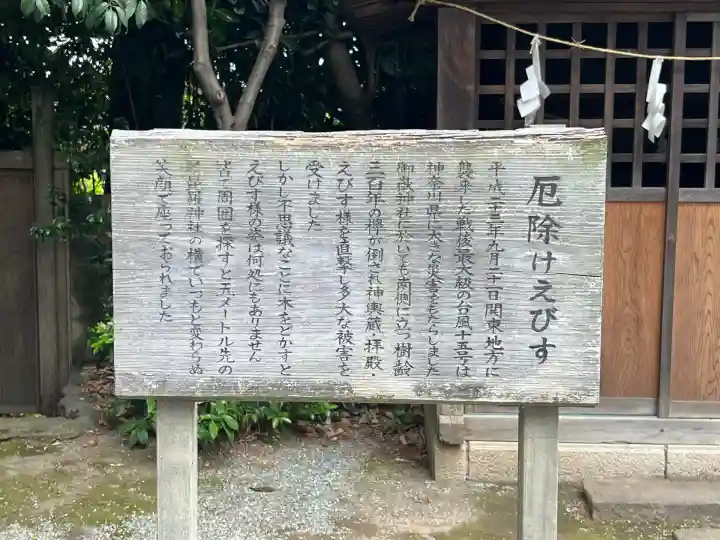 厄除けえびす
平成二十三年九月二十一日関東地方に
襲来した戦後最大級の台風十五号は
神奈川県に大きな災害をもたらしました
御嶽神社に於いても南側に立つ樹齢
三百年の欅が倒され神輿蔵・拝殿・
えびす様を直撃し多大な被害を
受けました
しかし不思議なことに木をどかすと
えびす様の姿は何処にもありません
皆で周囲を探すと五メートル先の
毘羅神社の横でいつもと変わらぬ
笑顔で座っておられました